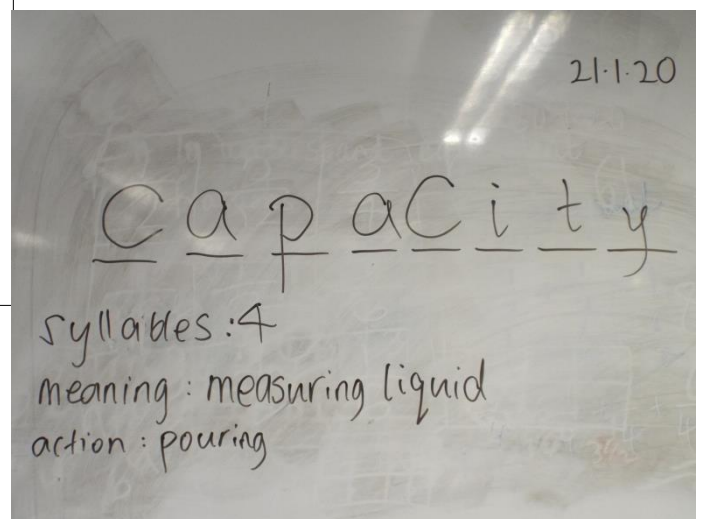 21.1.20
Capacity
syllables: 4
meaning: measuring liquid
action: pouring